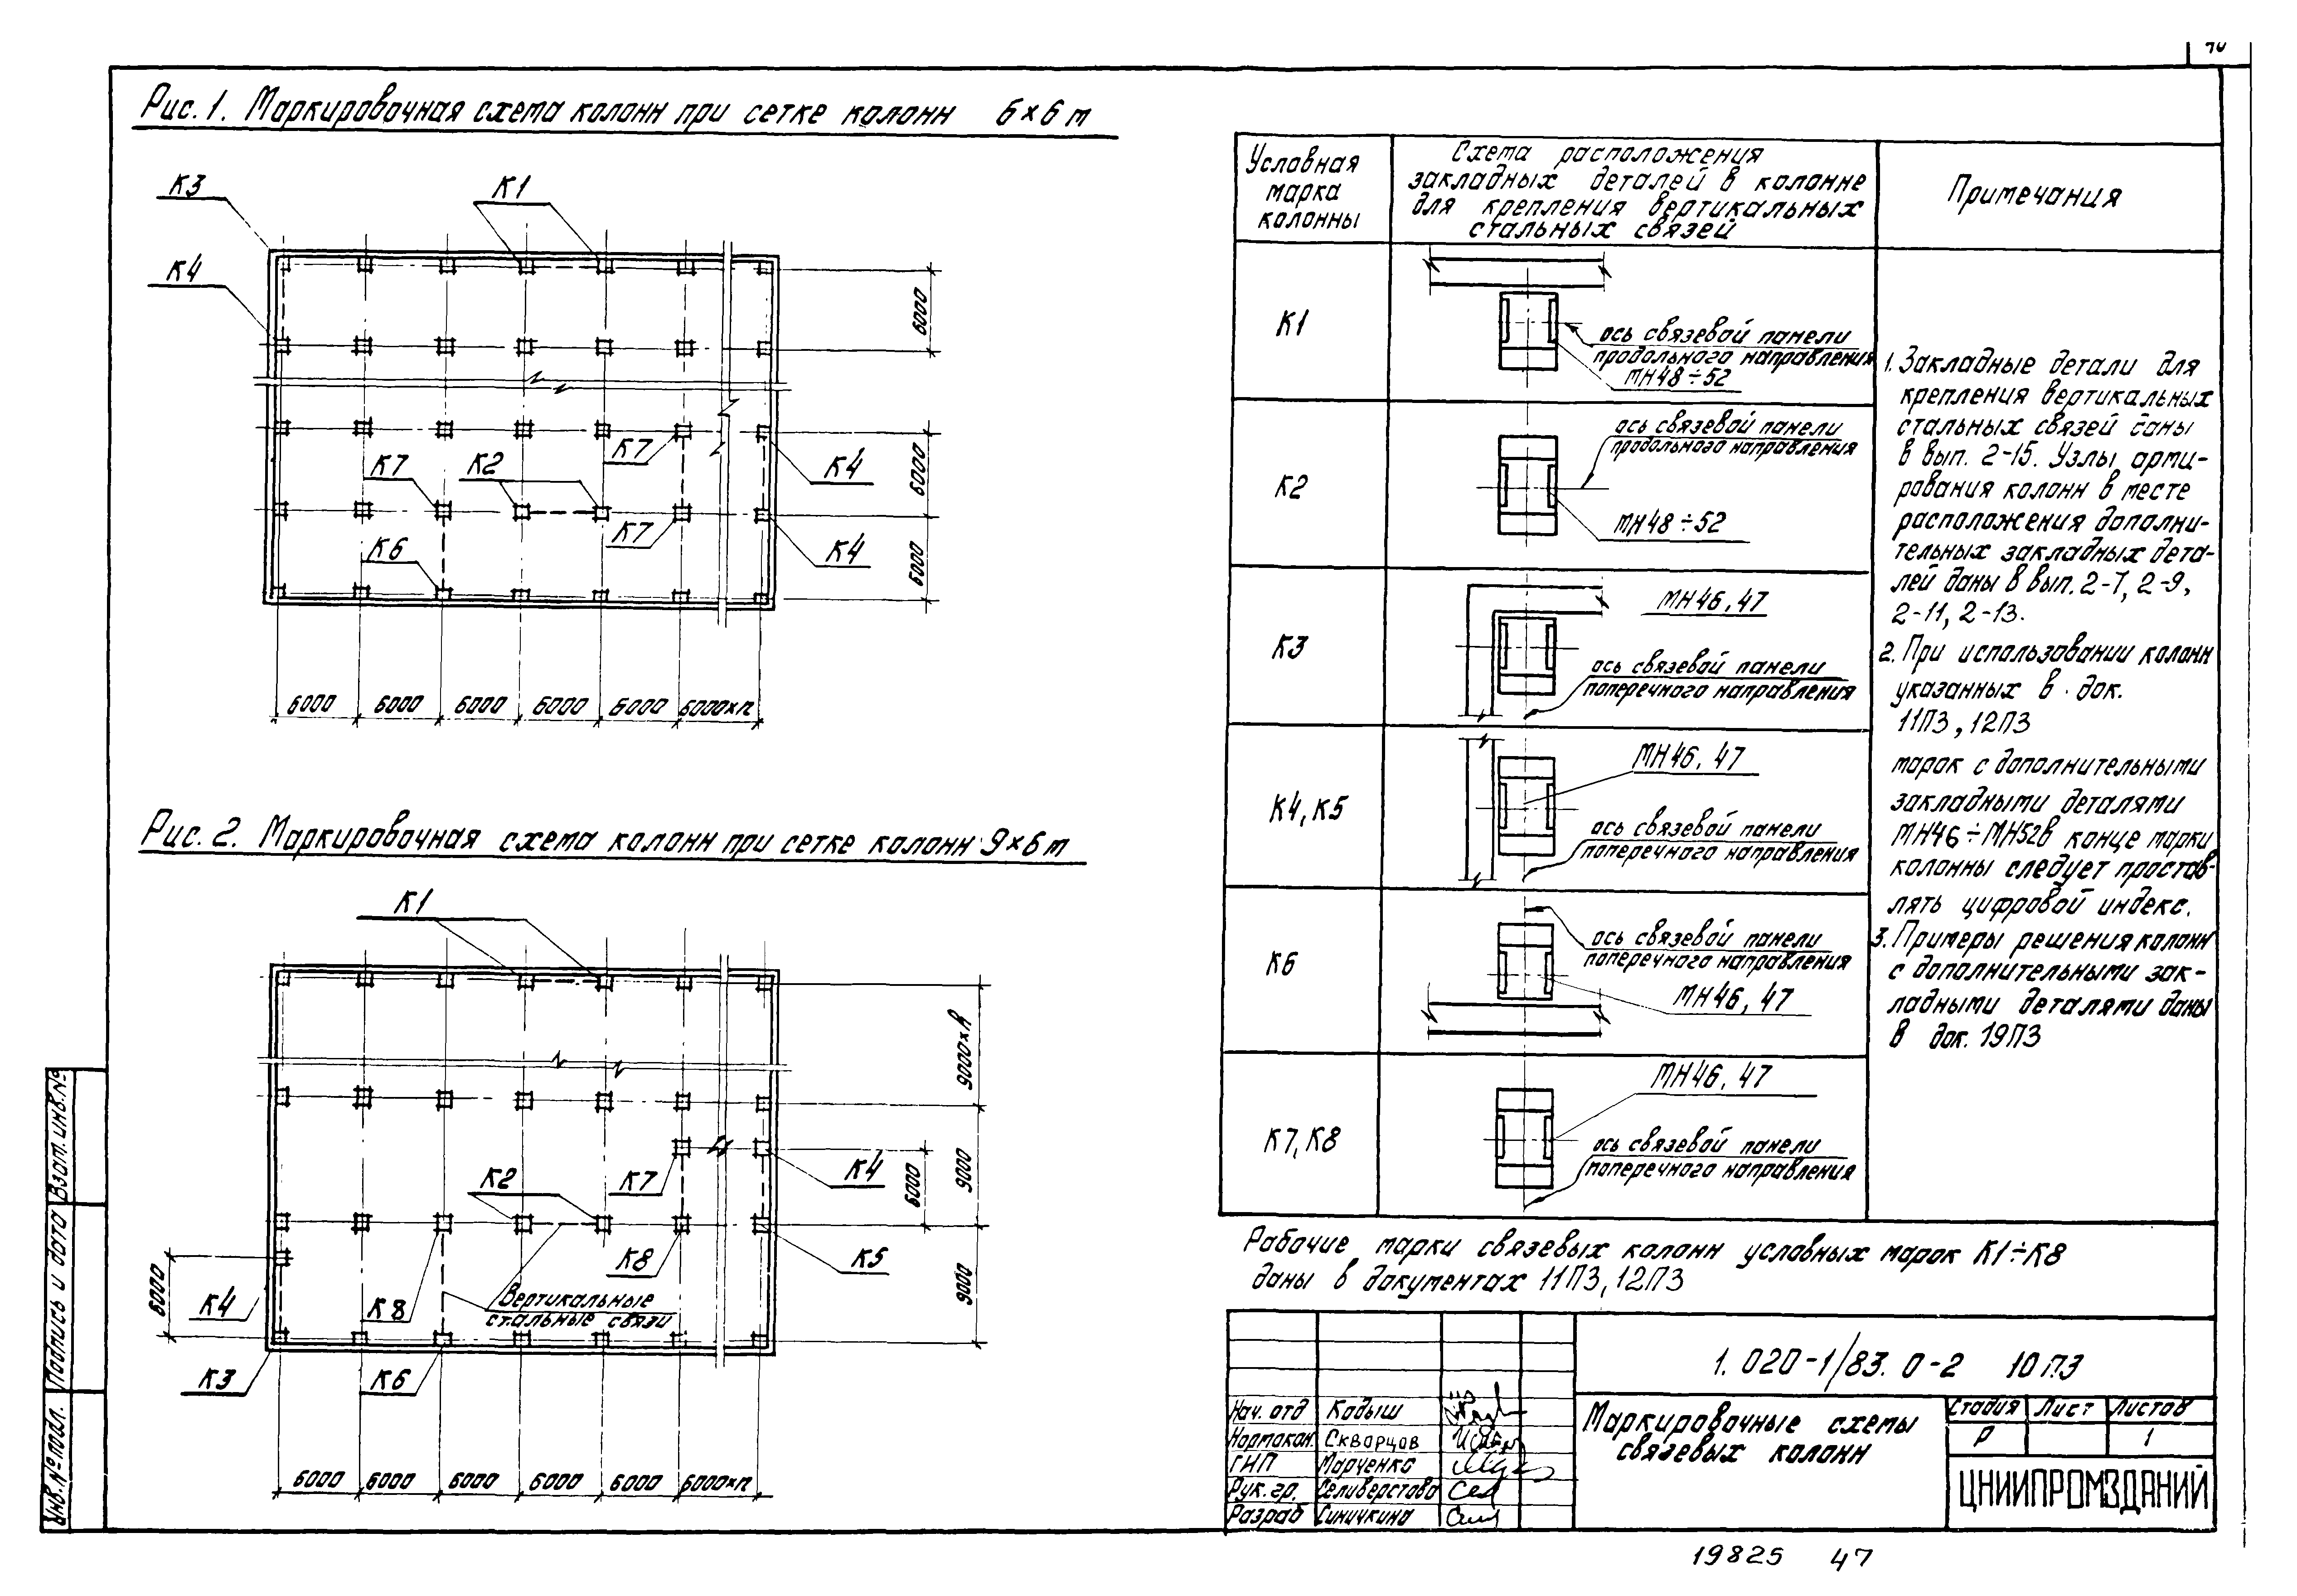 40
Рис. 1. Маркировочная схема колонн при сетке колонн 6×6 м
К3
К1
К4
К7
К4
К7
К2
К7
К4
К6
6000
6000
6000
6000
6000
6000
6000
6000
6000×п
Рис. 2. Маркировочная схема колонн при сетке колонн 9×6 м
К1
К2
К7
К4
К8
К5
К4
К8
Вертикальные
стальные связи
К3
К6
9000×к
9000
9000
6000
6000
6000
6000
6000
6000
6000
6000×п
Условная
марка
колонны
Схема расположения
закладных деталей в колонне
для крепления вертикальных
стальных связей
Примечания
К1
ось связевой панели
продольного направления
МН48÷52
К2
ось связевой панели
продольного направления
МН48÷52
К3
МН46, 47
ось связевой панели
поперечного направления
К4, К5
МН46, 47
ось связевой панели
поперечного направления
К6
ось связевой панели
поперечного направления
МН46, 47
К7, К8
МН46, 47
ось связевой панели
поперечного направления
1. Закладные детали для
крепления вертикальных
стальных связей даны
в вып. 2-15. Узлы арми-
рования колонн в месте
расположения дополни-
тельных закладных дета-
лей даны в вып. 2-7, 2-9,
2-11, 2-13.
2. При использовании колонн
указанных в док.
11ПЗ, 12ПЗ
марок с дополнительными
закладными деталями
МН46÷МН52 в конце марки
колонны следует простав-
лять цифровой индекс.
3. Примеры решения колонн
с дополнительными зак-
ладными деталями даны
в док. 19ПЗ
Рабочие марки связевых колонн условных марок К1÷К8
даны в документах 11ПЗ, 12ПЗ
1.020-1/83. 0-2 10ПЗ
Нач. отд Кодыш
Нормокон. Скворцов
ГНП Марченко
Рук. гр. Селиверстова
Разраб Синичкина
Маркировочные схемы
связевых колонн
Стадия Лист Листов
Р 1
ЦНИИПРОМЗДАНИЙ
Инв.№ подл. Подпись и дата Взам. инв.№
19825 47